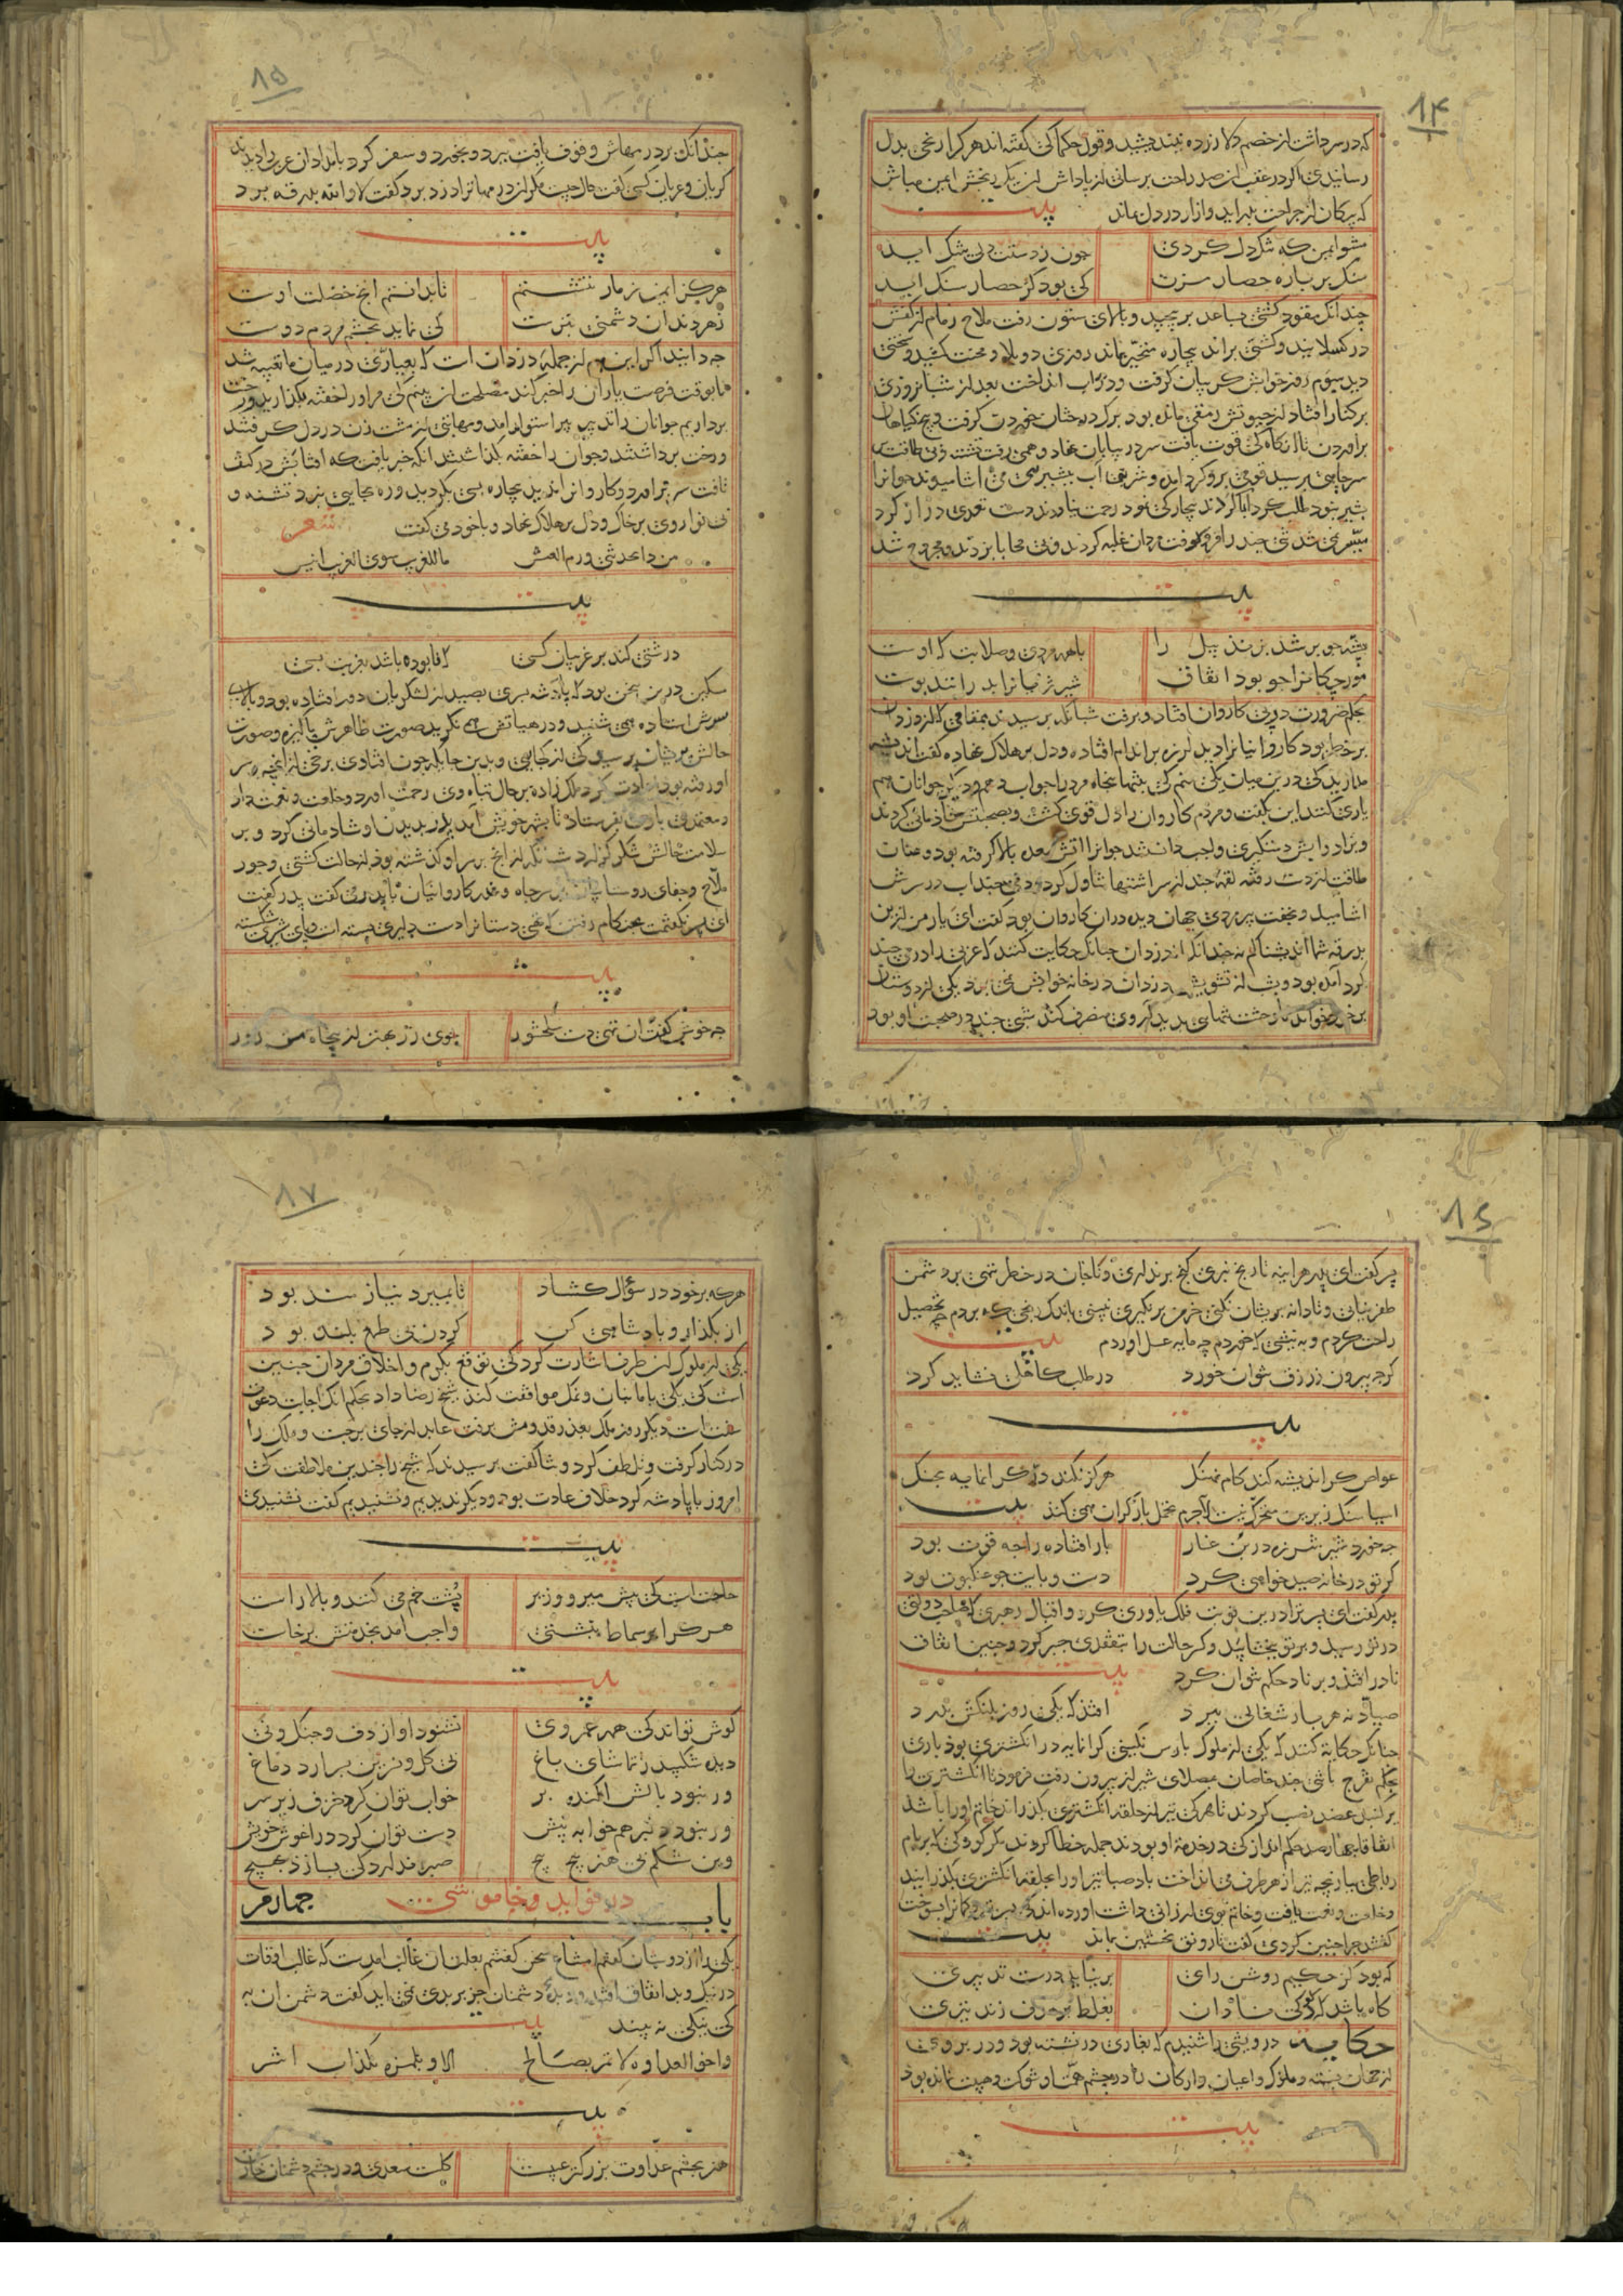 ۸۴
که در سر داشت از خصم دل ازرده نیندیشید و قول حکما کی گفته اند هر کرا رنجی بدل
رسانیدی اکر در عقب ان صد راحت برسانی از پاداش ان یک رنجش ایمن مباش
که پیکان از جراحت بدر اید و ازار در دل بماند بیت
مشو ایمن که تنک دل کردی
چون ز دستت دلی بتنک اید
سنک بر باره حصار مزن
کی بود کز حصار سنک اید
چندانک مقود کشتی بساعد بر پیچید و بالای ستون رفت ملاح زمام از کفش
در کسلانید و کشتی براند بیچاره متحیر بماند روزی دو بلا و محنت کشید و سختی
دید سیوم روز خوابش کریبان کرفت و در آب انداخت بعد از شبانروزی
بر کنار افتاد از حیوتش رمقی مانده بود برک درختان خوردن کرفت و بیخ کیاهان
براوردن تا اندکی قوت یافت سر در بیابان نهاد و همی رفت تشنه و بی طاقت
سر چاهی برسید قومی برو کرد امده و شربتی آب بپشیزی همی اشامیدند جوانرا
پشیز نبود طلب کرد ابا کردند بیچارکی نمود رحمت نیاوردند دست تعدی دراز کرد
میسر نمی شد تنی چند را فرو کوفت مردان غلبه کردند و بی محابا بزدند و مجروح شد
بیت
پشه چو پر شد بزند پیل را
با همه مردی و صلابت که اوست
مورچکانرا چو بود اتفاق
شیر ژیانرا بدرانند پوست
بحکم ضرورت در پی کاروان افتاد و برفت شبانکه برسیدند بمقامی که از دزدان
بر خطر بود کاروانیانرا دید لرزه بر اندام افتاده و دل بر هلاک نهاده کفت اندیشه
مدارید کی درین میان یکی منم کی بتنها پنجاه مرد را جواب دهم و دیکر جوانان هم
یاری کنند این بکفت و مردم کاروان را دل قوی کشت و بصحبتش شادمانی کردند
و بزاد و ابش دستکیری واجب دانستند جوانرا اتش معده بالا کرفته بود و عنان
طاقت از دست رفته لقمه چند از سر اشتها تناول کرد و دمی چند اب در سرش
اشامید و بخفت پیر مردی جهان دیده در ان کاروان بود کفت ای یاران من ازین
بدرقه شما اندیشناکم نه چندانکه از دزدان چنانک حکایت کنند که عربی را درمی چند
کرد آمده بود و بشب از تشویش دزدان در خانه خوابش نمی برد یکی از دوستان
بر خود خواند تا وحشت تنهایی بدیدار وی منصرف کند شبی چند در صحبت او بود
۸۵
چندانک بر درمهاش وقوف یافت ببرد و بخورد و سفر کرد بامدادان عرب را دیدند
کریان و عریان کسی کفت حال چیست مکر ان درمهاترا دزد برد کفت لا والله بدرقه برد
بیت
هرکز ایمن ز مار ننشستم
تا بدانستم انچ خصلت اوست
زهر دندان دشمنی بترست
کی نماید بچشم مردم دوست
چه دانید اکر این هم از جمله دزدان است که بعیاری در میان ما تعبیه شد
تا بوقت فرصت یاران را خبر کند مصلحت ان بینم کی مر او را خفته بکذاریم و رخت
برداریم جوانان را تدبیر پیر استوار امد و مهابتی از مشت زن در دل کرفتند
و رخت برداشتند و جوان را خفته بکذاشتند انکه خبر یافت که افتابش در کتف
تافت سر براورد و کاروانرا ندید بیچاره بسی بکردید و ره بجایی نبرد تشنه و
بی نوا روی بر خاک و دل بر هلاک نهاد و با خود می کفت شعر
من ذا یحدثنی و زم العیس
ما للغریب سوی الغریب انیس
بیت
درشتی کند بر غریبان کسی
که نا بوده باشد بغربت بسی
مسکین درین سخن بود که پادشه پسری بصید از لشکریان دور افتاده بود و بالای
سرش استاده همی شنید و در هیاتش همی نکرید صورت ظاهرش پاکیزه و صورت
حالش پریشان پرسید کی از کجایی و بدین جایکه چون افتادی برخی از انچه بر سر
او رفته بود اعادت کرد ملک زاده بر حال تباه وی رحمت اورد و خلعت و نعمت داد
و معتمدی با وی بفرستاد تا بشهر خویش آمد پدر بدیدن او شادمانی کرد و بر
سلامت حالش شکر کزارد شبانکه از انچ بر سر او کذشته بود از حالت کشتی و جور
ملاح و جفای روستاییان بر سر چاه و غدر کاروانیان با پدر می کفت پدر کفت
ای پسر نکفتمت هنکام رفتن که تهی دستانرا دست دلیری بسته است و پای شیری شکسته
بیت
چه خوش کفت ان تهی دست سلحشور
جوی زر بهتر از پنجاه من زور
۸۶
پسر کفت ای پدر هراینه تا رنج نبری کنج بر نداری و تا جان در خطر ننهی بر دشمن
ظفر نیابی و تا دانه پریشان نکنی خرمن بر نکیری نبینی باندک رنجی که بردم چه تحصیل
راحت کردم و به نیشی که خوردم چه مایه عسل اوردم بیت
کرچه بیرون ز رزق نتوان خورد
در طلب کاهلی نشاید کرد
بیت
غواص کر اندیشه کند کام نهنک
هرکز نکند در کرانمایه بچنک
اسیا سنک زیرین متحرک نیست لاجرم تحمل بار کران همی کند بیت
چه خورد شیر شرزه در بن غار
باز افتاده را چه قوت بود
کر تو در خانه صید خواهی کرد
دست و پایت چو عنکبوت بود
پدر کفت ای پسر ترا درین نوبت فلک یاوری کرد و اقبال رهبری که صاحب دولتی
در تو رسید و بر تو ببخشایید و کسر حالت را بتفقدی جبر کرد و چنین اتفاق
نادر افتد و بر نادر حکم نتوان کرد بیت
صیاد نه هر بار شغالی ببرد
افتد که یکی روز پلنکش بدرد
چنانک حکایة کنند که یکی از ملوک پارس نکینی کرانمایه در انکشتری بود باری
بحکم تفرج با تنی چند خاصان بمصلای شیراز بیرون رفت فرمود تا انکشتری را
بر کنبد عضد نصب کردند تا هر کی تیر از حلقه انکشتری بکذراند خاتم او را باشد
اتفاقا چهار صد حکم انداز کی در خدمة او بودند جمله خطا کردند مکر کودکی که بر بام
رباطی ببازیچه تیر از هر طرف می انداخت باد صبا تیر او را بحلقه انکشتری بکذرانید
و خلعت و نعمت یافت و خاتم بوی ارزانی داشت اورده اند کی پسر تیر و کمانرا بسوخت
کفتند چرا چنین کردی کفت تا رونق نخستین بماند بیت
که بود کز حکیم روشن رای
بر نیاید درست تدبیری
کاه باشد که کودکی نادان
بغلط بر هدف زند تیری
حکایت درویشی را شنیدم که بغاری در نشسته بود و در بروی
از جهان بسته و ملوک و اعیان و ارکان را در چشم همت او شوکت و هیبت نمانده بود
بیت
۸۷
هر که بر خود در سؤال کشاد
تا بمیرد نیازمند بود
از بکذار و پادشاهی کن
کردن بی طمع بلند بود
یکی از ملوک ان طرف اشارت کرد کی توقع بکرم و اخلاق مردان چنین
است کی یکی با ما بنان و نمک موافقت کنند شیخ رضا داد بحکم انک اجابت دعوت
سنت است دیکر روز ملک بعذر قدومش برفت عابد از جای برجست و ملک را
در کنار کرفت و تلطف کرد و ثنا کفت پرسیدند که شیخ را چندین ملاطفت کی
امروز با پادشه کرد خلاف عادت بود و دیکر ندیدیم و نشنیدیم کفت نشنیدی
بیت
حاجت انست کی پیش میر و وزیر
پشت خم می کنند و بالا راست
هر کرا بر سماط بنشستی
واجب امد بخدمتش برخاست
بیت
کوش تواند کی همه عمر وی
نشنود اواز دف و چنک و نی
دیده شکیبد ز تماشای باغ
بی کل و نسرین بسر ارد دماغ
ور نبود بالش اکنده پر
خواب توان کرد خزف زیر سر
ور نبود دلبر هم خوابه پیش
دست توان کرد در اغوش خویش
وین شکم بی هنر پیچ پیچ
صبر ندارد کی بسازد بهیچ
باب چهارم در فواید و خاموشی
یکی را از دوستان کفتم امتناع سخن کفتنم بعلت ان غالب امدست که غالب اوقات
در نیک و بد اتفاق افتد و دیده دشمنان جز بر بدی نمی اید کفت دشمن ان به
کی نیکی نه بیند بیت
و اخو العداوة لا یمر بصالح
الا و یلمزه بکذاب اشر
بیت
هنر بچشم عداوت بزرکتر عیبست
کلست سعدی و در چشم دشمنان خارست